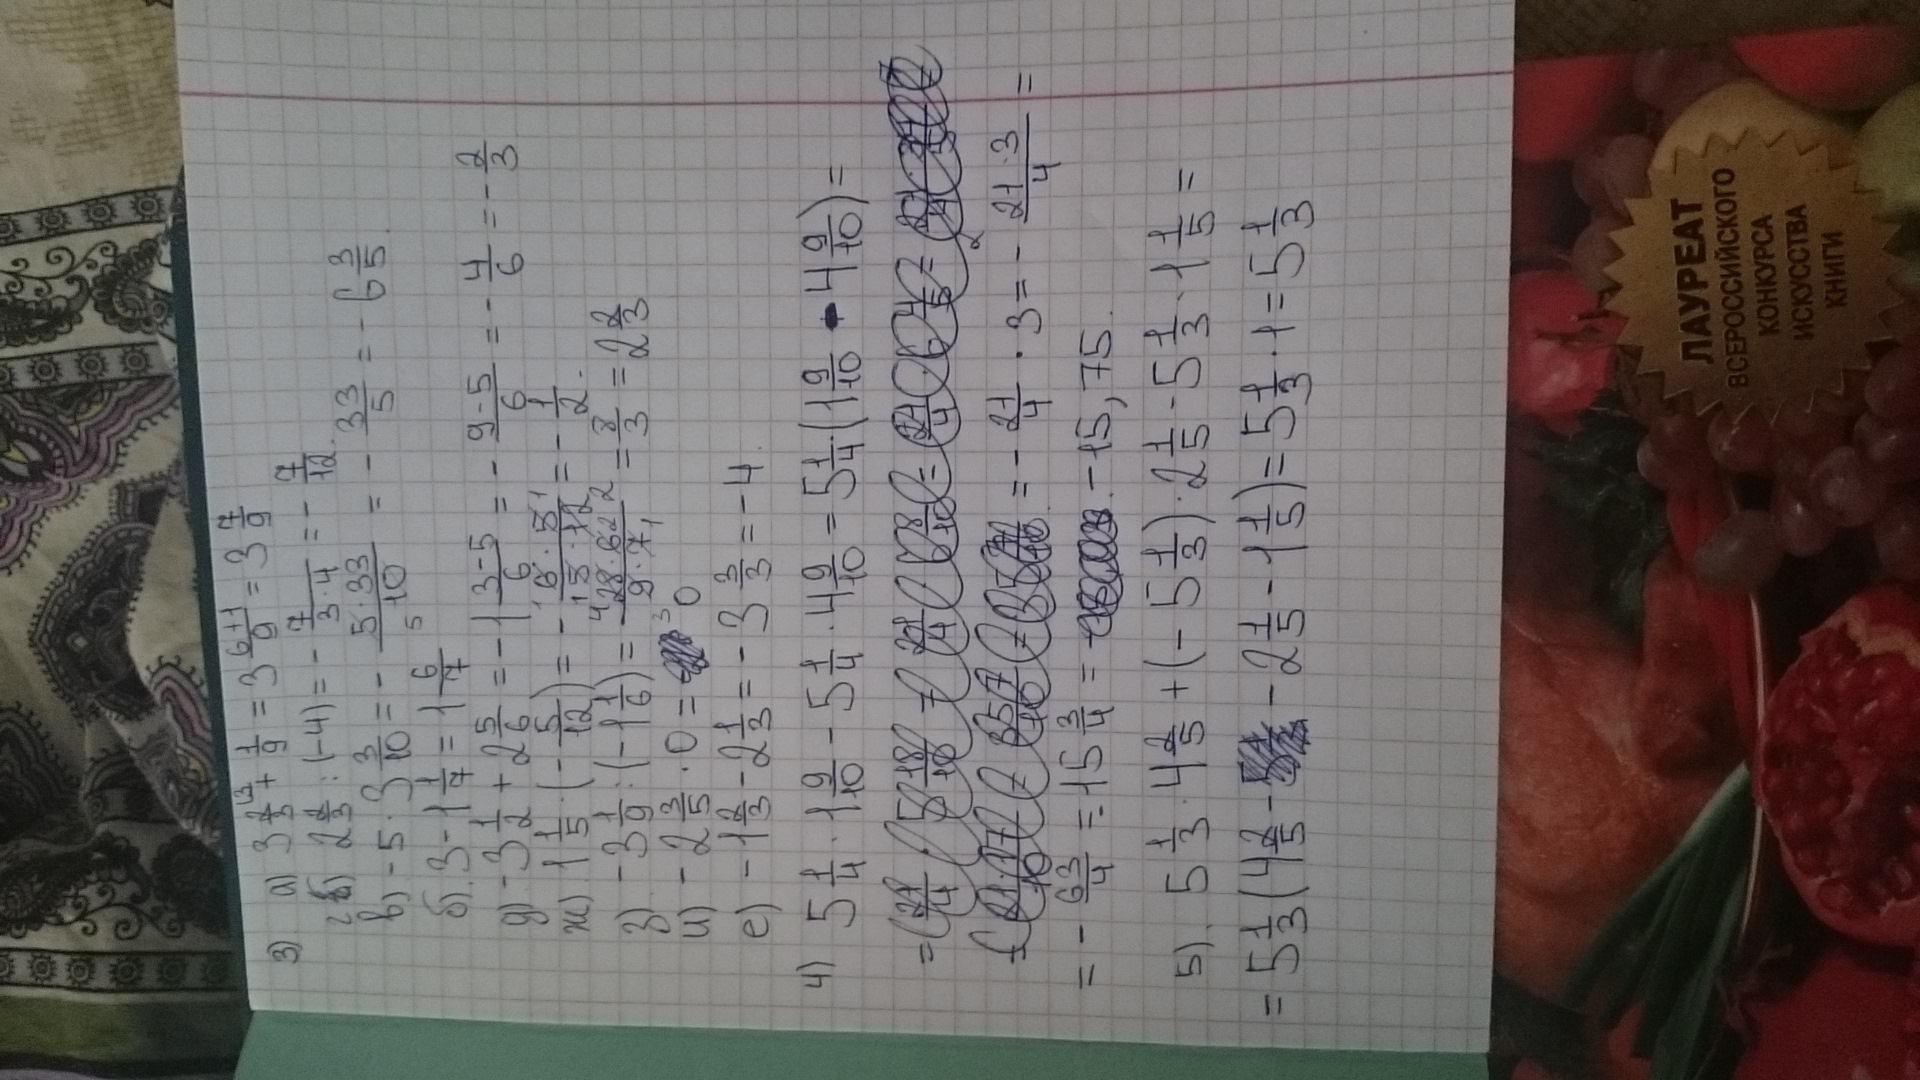 3) а) 3 2/3 + 1/9 = 3 6+1/9 = 3 7/9
г) 2 2/3 : (-4) = - 7/3·4 = - 7/12.
в) -5 · 3 3/10 = - 5·33/10 = - 33/5 = - 6 3/5.
б). 3 - 1 1/7 = 1 6/7
д) -3 1/2 + 2 5/6 = - 1 3-5/6 = - 9-5/6 = - 4/6 = - 2/3
ж) 1 1/5 · (- 5/12) = - 6·5/15·12 = - 1/2.
з) -3 1/9 : (-1 1/6) = 28·6/9·7 = 8/3 = 2 2/3
и) - 2 3/5 · 0 = 0
е) - 1 2/3 - 2 1/3 = - 3 3/3 = -4.
4) 5 1/4 · 1 9/10 - 5 1/4 · 4 9/10 = 5 1/4 · (1 9/10 - 4 9/10) =
= - 21/4 · 3 = - 21·3/4 =
= - 63/4 = 15 3/4 = -15,75.
5). 5 1/3 · 4 2/5 + (- 5 1/3) · 2 1/5 - 5 1/3 · 1 1/5 =
= 5 1/3 (4 2/5 - 2 1/5 - 1 1/5) = 5 1/3 · 1 = 5 1/3
ЛАУРЕАТ
ВСЕРОССИЙСКОГО
КОНКУРСА
ИСКУССТВА
КНИГИ